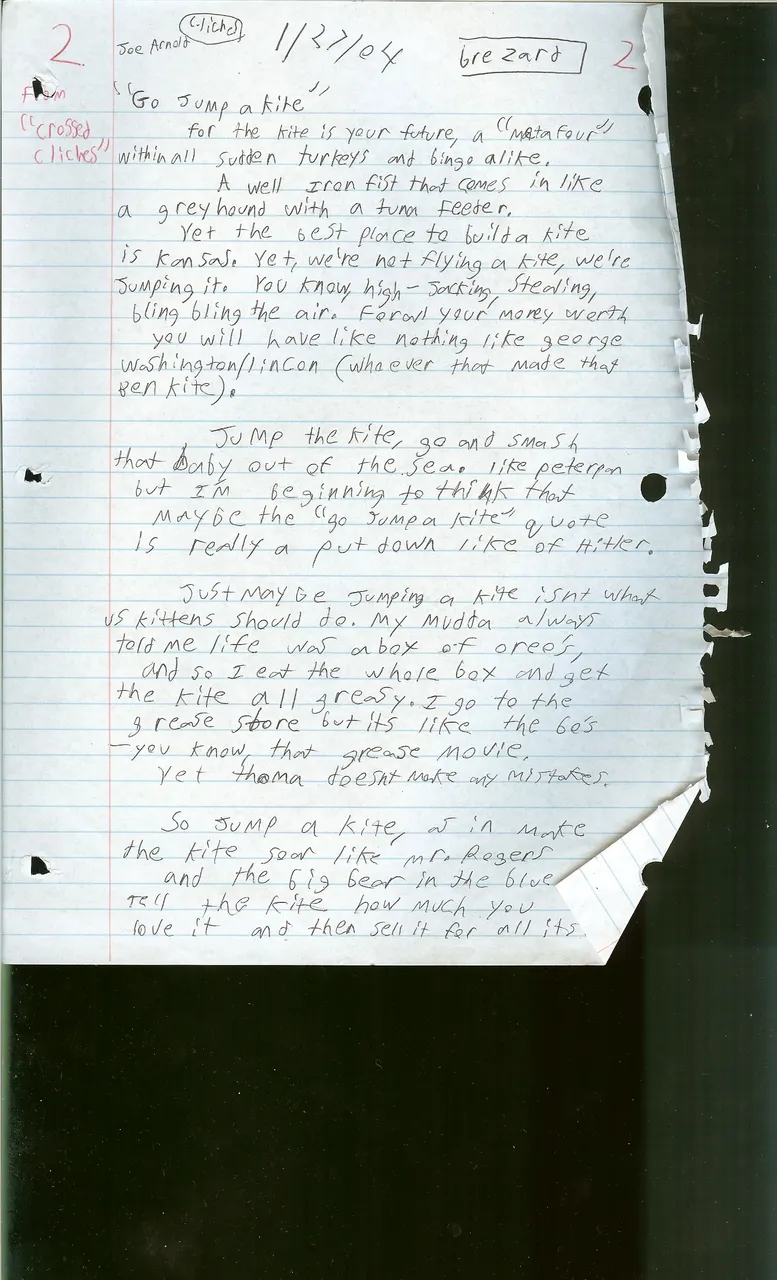 2 Joe Arnold Cliches 1/27/04 brezard 2
from
"crossed
cliches"
"Go Jump a kite"
for the kite is your future, a "metafour"
within all sudden turkeys and bingo alike.
A well Iron fist that comes in like
a greyhound with a tuna feeder.
Yet the best place to build a kite
is Kansas. Yet, we're not flying a kite, we're
Jumping it. You know, high-Jacking, Stealing,
bling bling the air. Forall your money worth
you will have like nothing like george
washington/lincon (whoever that made that
Ben kite).
Jump the kite, go and smash
that baby out of the sea. like peterpan
but I'm beginning to think that
maybe the "go Jump a kite" quote
Is really a put down like of Hitler.
Just maybe Jumping a kite isnt what
us kittens should do. My mudda always
told me life was a box of oreo's,
and so I eat the whole box and get
the kite all greasy. I go to the
grease store but its like the 60's
-you know, that grease movie.
Yet thoma doesnt make any mistakes.
So Jump a kite, as in make
the kite soar like mr. Rogers
and the big bear in the blue
Tell the kite how much you
love it and then sell it for all its